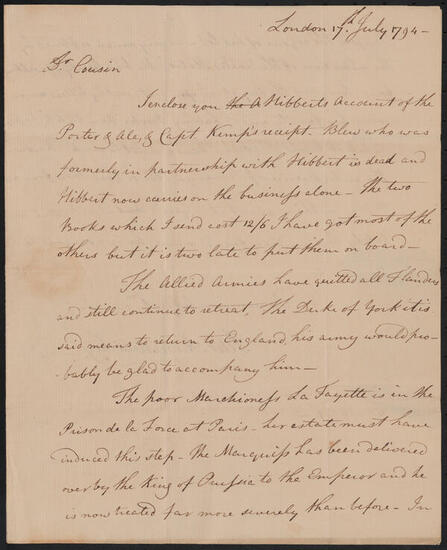 London 17th July 1794 -
Dr Cousin
I enclose you the A Hibberts Account of the
Porter & Ale, & Capt Kemp's receipt. Blew who was
formerly in partnership with Hibbert is dead and
Hibbert now carries on the business alone - The two
Books which I send cost 12/6 I have got most of the
others but it is two late to put them on board -
The Allied Armies have quitted all Flanders
and still continue to retreat, The Duke of York it is
said means to return to England, his army would pro-
bably be glad to accompany him -
The poor Marchioness La Fayette is in the
Prison de la Force at Paris - her estate must have
induced this step - The Marquiss has been delivered
over by the King of Prussia to the Emperor and he
is now treated far more severely than before - In